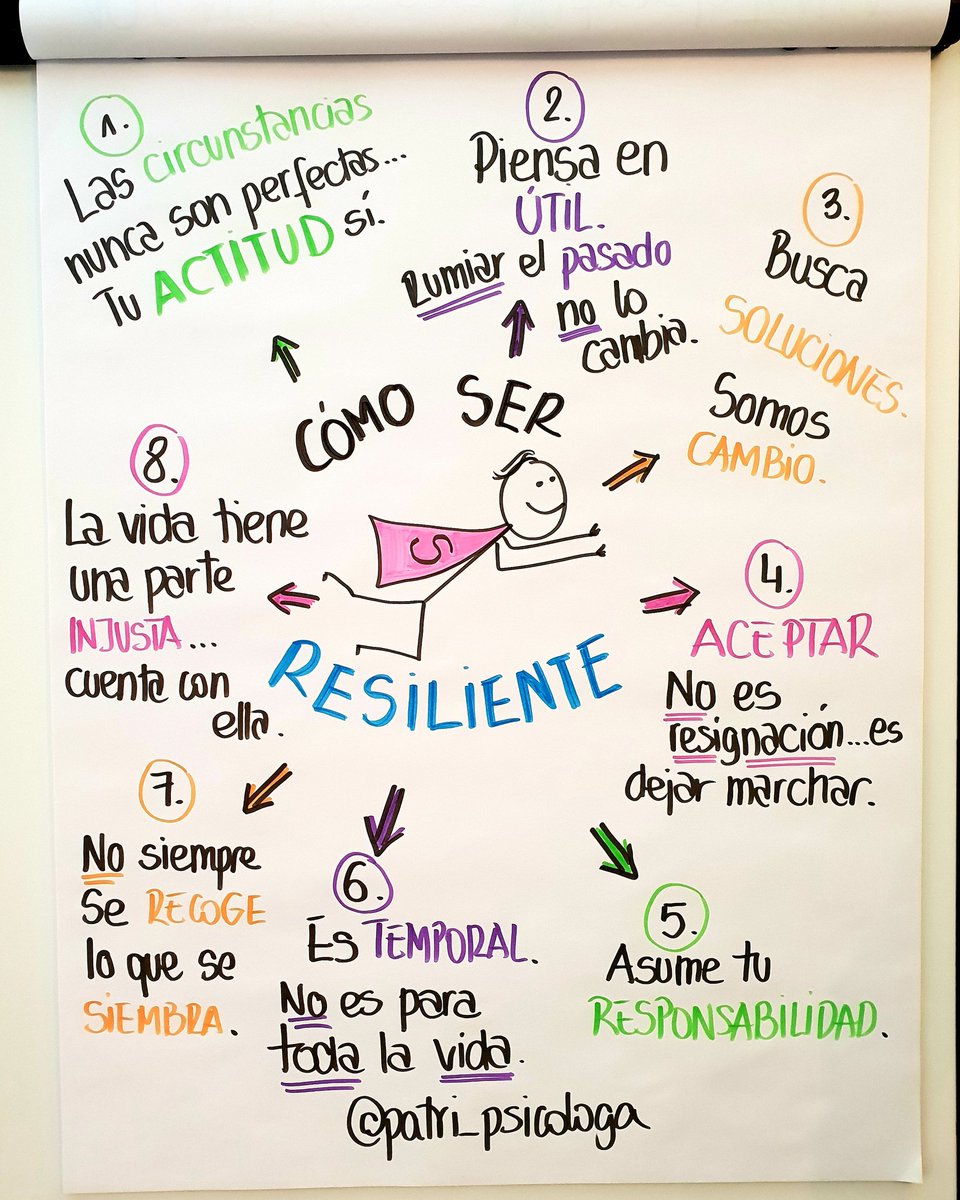 CÓMO SER
RESILIENTE
S
1.
Las circunstancias
nunca son perfectas...
Tu ACTITUD sí.
2.
Piensa en
ÚTIL.
Rumiar el pasado
no lo
cambia.
3.
Busca
SOLUCIONES.
Somos
CAMBIO.
4.
ACEPTAR
No es
resignación...es
dejar marchar.
5.
Asume tu
RESPONSABILIDAD.
6.
Es TEMPORAL.
No es para
toda la vida.
7.
No siempre
Se RECOGE
lo que se
SIEMBRA.
8.
La vida tiene
una parte
INJUSTA...
cuenta con
ella.
@patri_psicologa